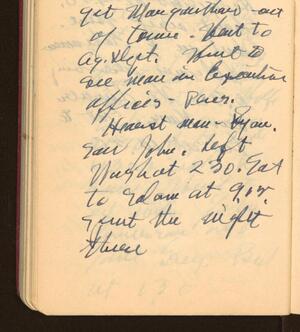 get Morganthau - out
of town. Went to
Ag. Dept. Went to
see man in Executive
offices -
Hearst man - Ryan.
Saw John. Left
Wash at 2 30. Got
to Salem at 9.05.
Spent the night
there